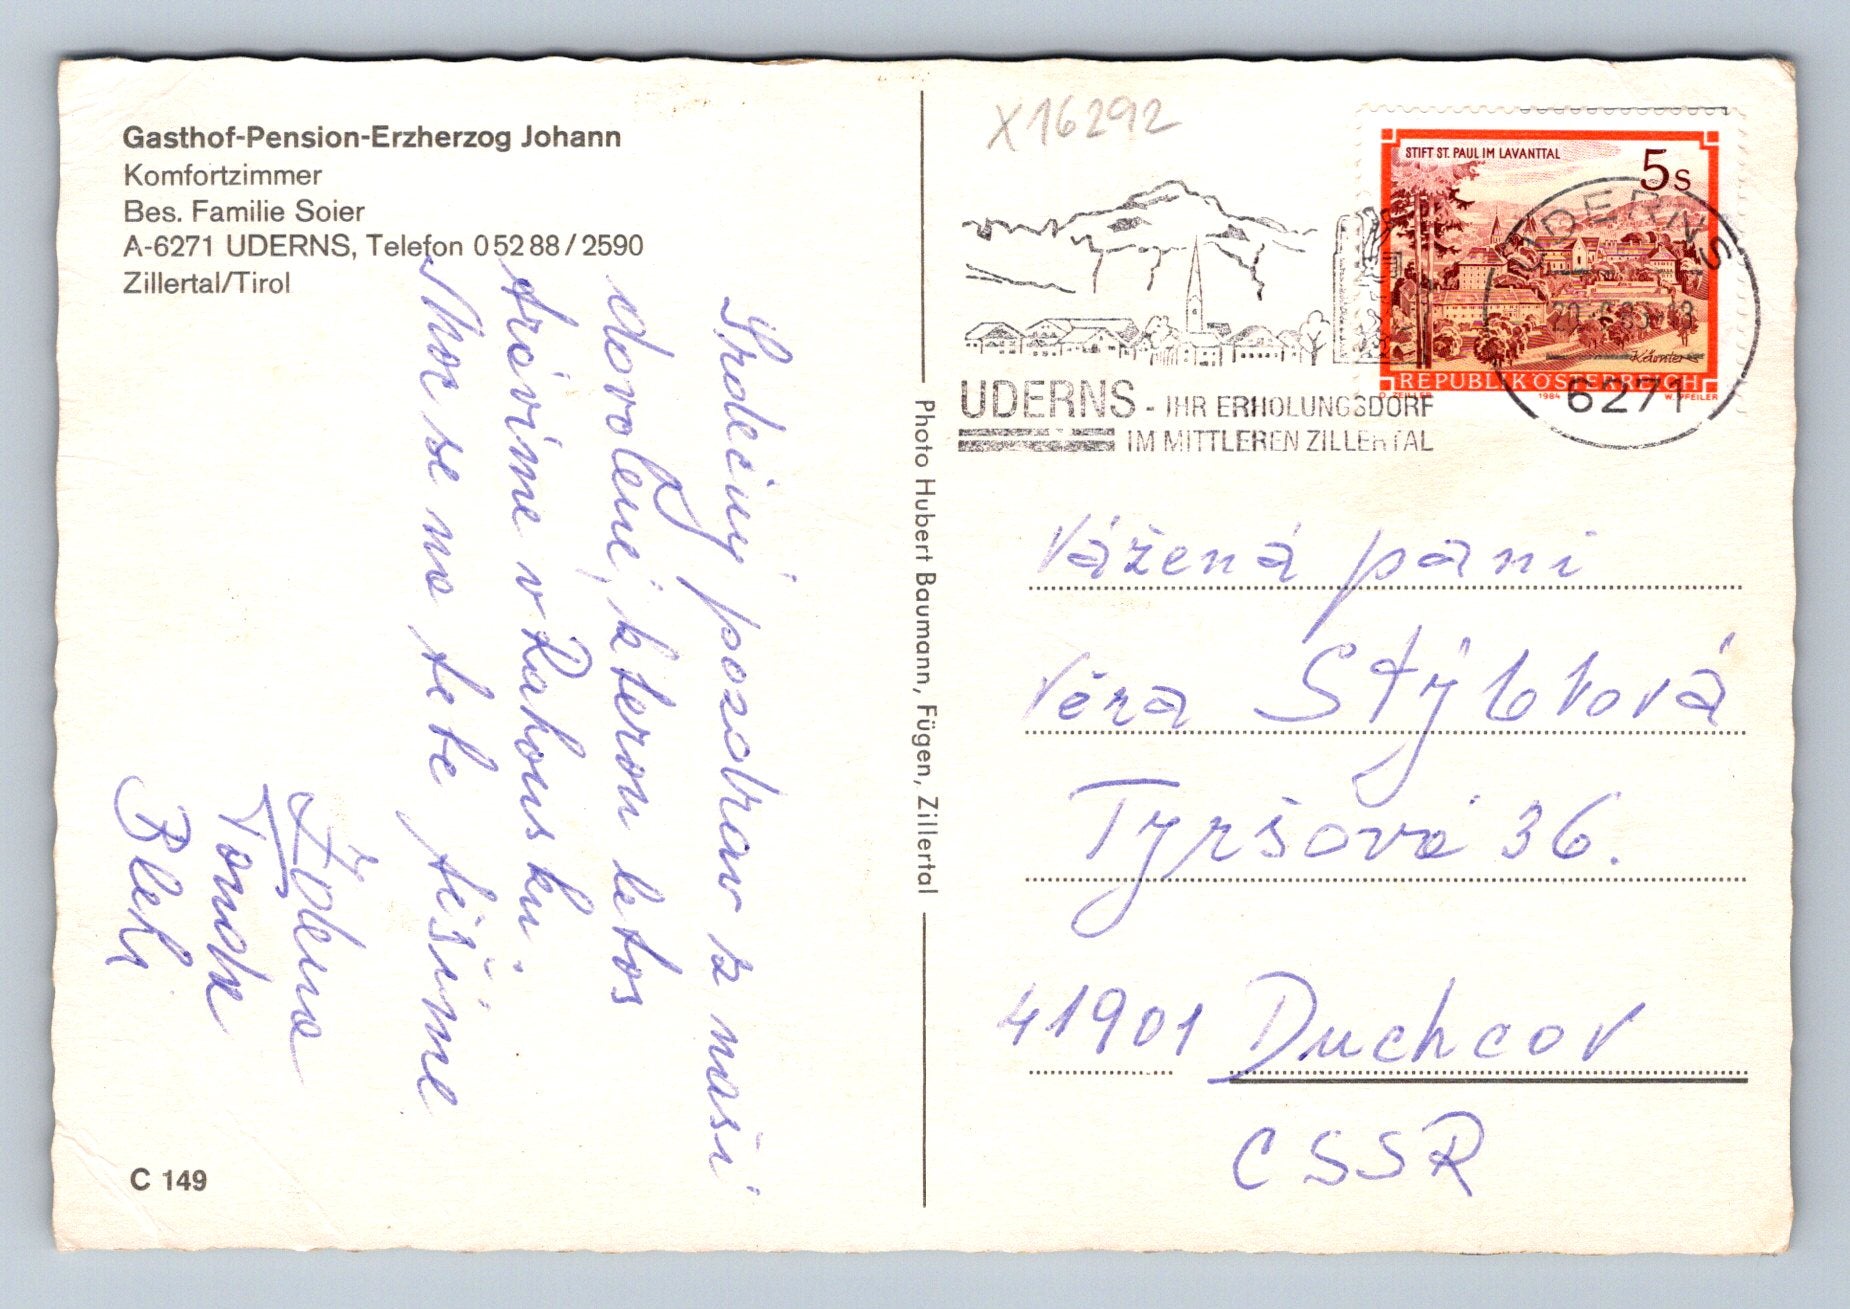 Gasthof-Pension-Erzherzog Johann
Komfortzimmer
Bes. Familie Soier
A-6271 UDERNS, Telefon 05288/2590
Zillertal/Tirol
Srdečný pozdrav z naší
dovolené, kterou letos
trávíme v Rakousku.
Moc se na tebe těšíme
Zdena
Tonda
C 149
Photo Hubert Baumann, Fügen, Zillertal
X16292
STIFT ST. PAUL IM LAVANTTAL
5s
Kärnten
REPUBLIK ÖSTERREICH
1984
W. PFEILER
UDERNS
6271
UDERNS - IHR ERHOLUNGSDORF
IM MITTLEREN ZILLERTAL
Vážená paní
Věra Stýblová
Tyršova 36.
41901 Duchcov
CSSR